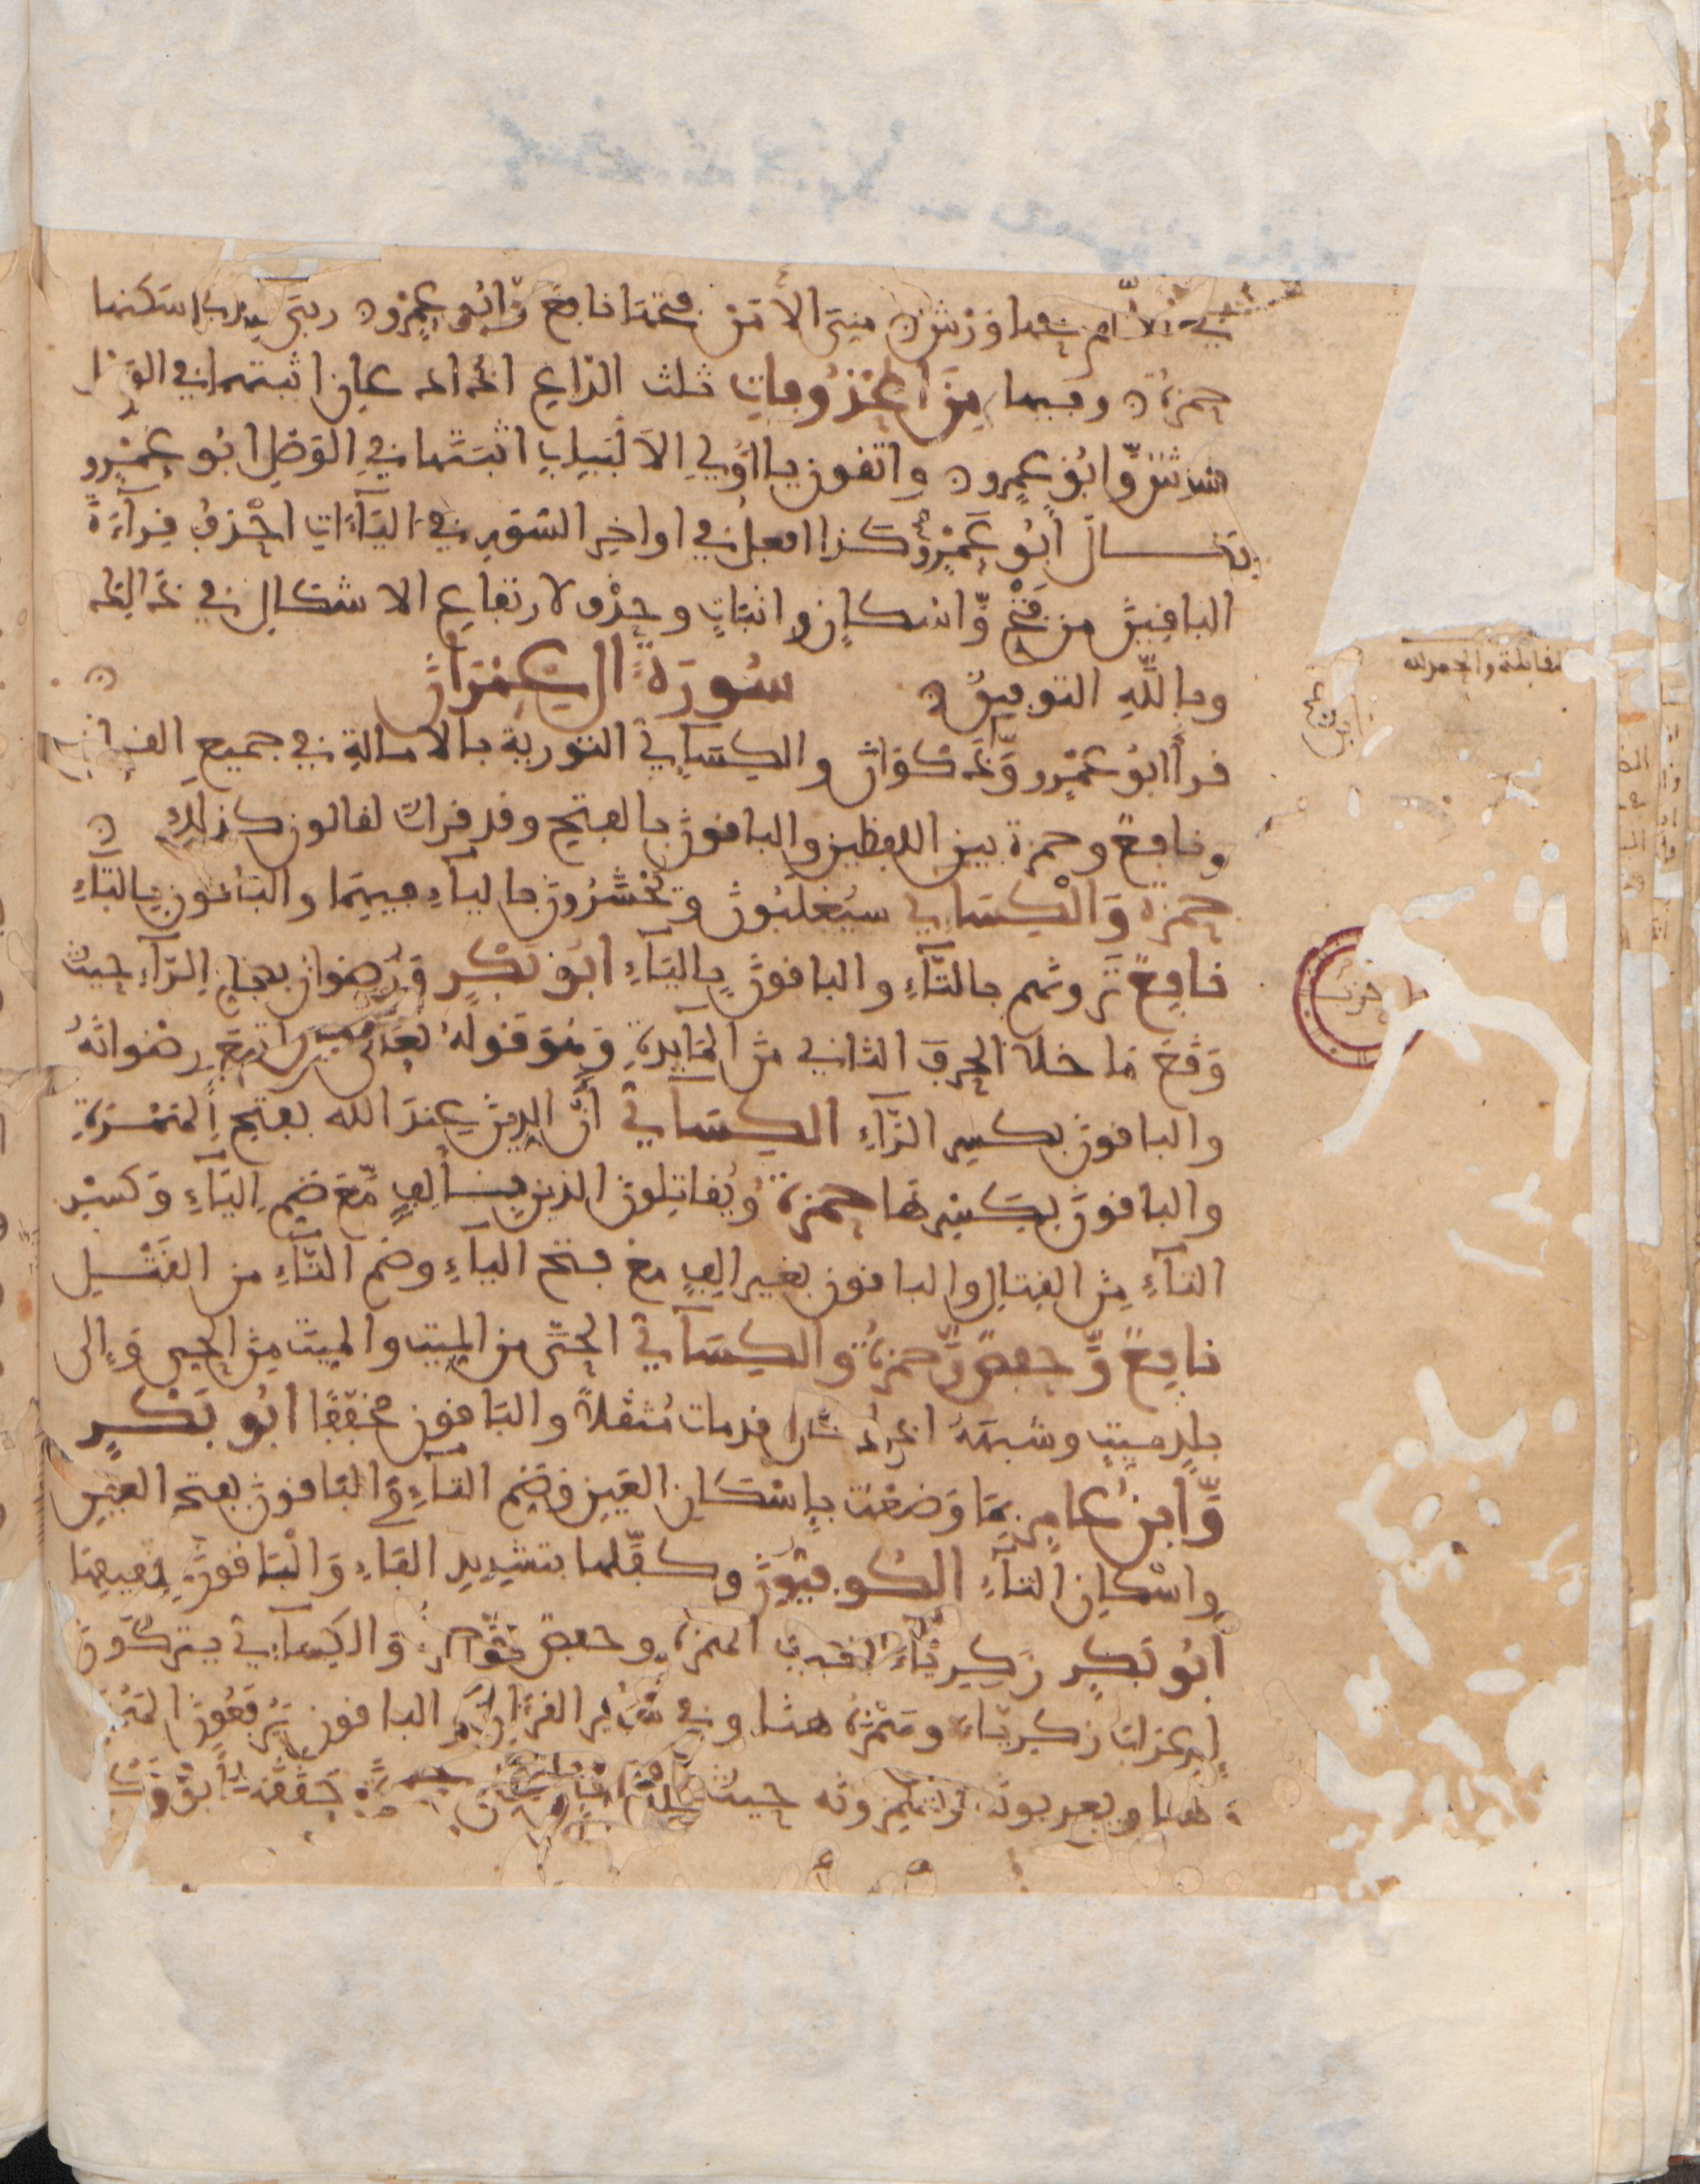 فتحها ورش ن مني الا من فتحها نافع وّابو عمرو ن ربي الذي اسكنها
حمزة ن وفيها مِنَ المحذوفاتِ ثلث الداعِ اذا دعانِ اثبتهما في الوصل
ورشٌ وّابُو عمرو ن واتقونِ يا اولي الالبابِ اثبتها في الوصل ابو عمرو
قال ابُو عَمْرٍو كذا افعل في اواخر السّور في اليآءات احْذِفُ قِرآءَةَ
الباقِينَ من فَتْحٍ وّاسْكانٍ واثباتٍ وحذْفٍ لارتفاعِ الاشكالِ في ذلك
وباللّهِ التوفيقُ ن سُورَةُ ال عِمْرَانَ ن
قرأ ابُو عَمْرٍو وَّابْنُ ذكوانَ والكِسَآءِيُّ التورية بالامالةِ في جميع القرآن
ونافعٌ وحمزة بين اللفظين والباقونَ بالفتحِ وقد قرات لقالون كذلك ن
حمزة وَالْكِسَاءِي سيُغلَبُونَ وَيُحْشَرُونَ باليآءِ فيهِمَا والبَاقونَ بِالتَّآءِ
نافِعٌ تَرَونهم بالتَّآءِ والباقونَ بِاليَآءِ ابُو بَكْرٍ وَرُضوانٌ بضمِ الرّآءِ حيثُ
وَقَعَ مَا خلا الحرفَ الثانِي منَ المآيدةِ وَهُوَ قَولهُ تعالى من اتبع رِضْوَانَهُ
والباقونَ بكسرِ الرّآءِ الكِسَآءِيُّ أَنَّ الدِينَ عِندَ الله بفتحِ الهَمْزةِ
والباقونَ بِكَسْرِهَا حمزة وَيُقاتِلونَ الذين بِألِفٍ مَّعَ ضَمِ اليَآءِ وَكَسْرِ
التآءِ مِنَ القِتالِ والباقون بغيرِ الِفٍ معَ فتحِ اليآءِ وضمِ التّآءِ من القَتْلِ
نافِعٌ وَّحفصٌ وَّحمزةُ والكِسَآءِيُّ الحَيَّ من الميِّتِ والميِّتَ مِنَ الحي وَإلى
بلدٍ ميِّتٍ وشبهَهُ اذا كان قد مات مُثقلاً والبَاقون مخففًا ابُو بَكْرٍ
وَّابنُ عامرٍ بِمَا وَضَعْتُ بِإسْكَانِ العَيْنِ وَضَمِ التآءِ وَالبَاقونَ بفتحِ العَيْنِ
وإسْكانِ التآءِ الكُوفِيُّونَ وكفّلها بتشْدِيدِ الفآءِ وَالْبَاقونَ بتخفيفِهَا
ابُو بَكرٍ زكرِيَّآءَ بنصب الهمزة وحفصٌ وَحمزةُ وَالكِسَآءِي يتركونَ
إعرابَ زكريّآءَ وهَمْزَهُ هنا وفي سَآئِرِ القُرْآنِ والباقون يَرْفَعُونَ الهَمْزَةَ
هنا ويعربونه ويهمزونه حيثُ
مقابلة والحمد لله
حزب